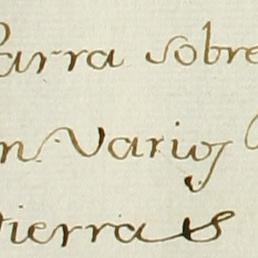 Parra sobre
en Varios
tierras